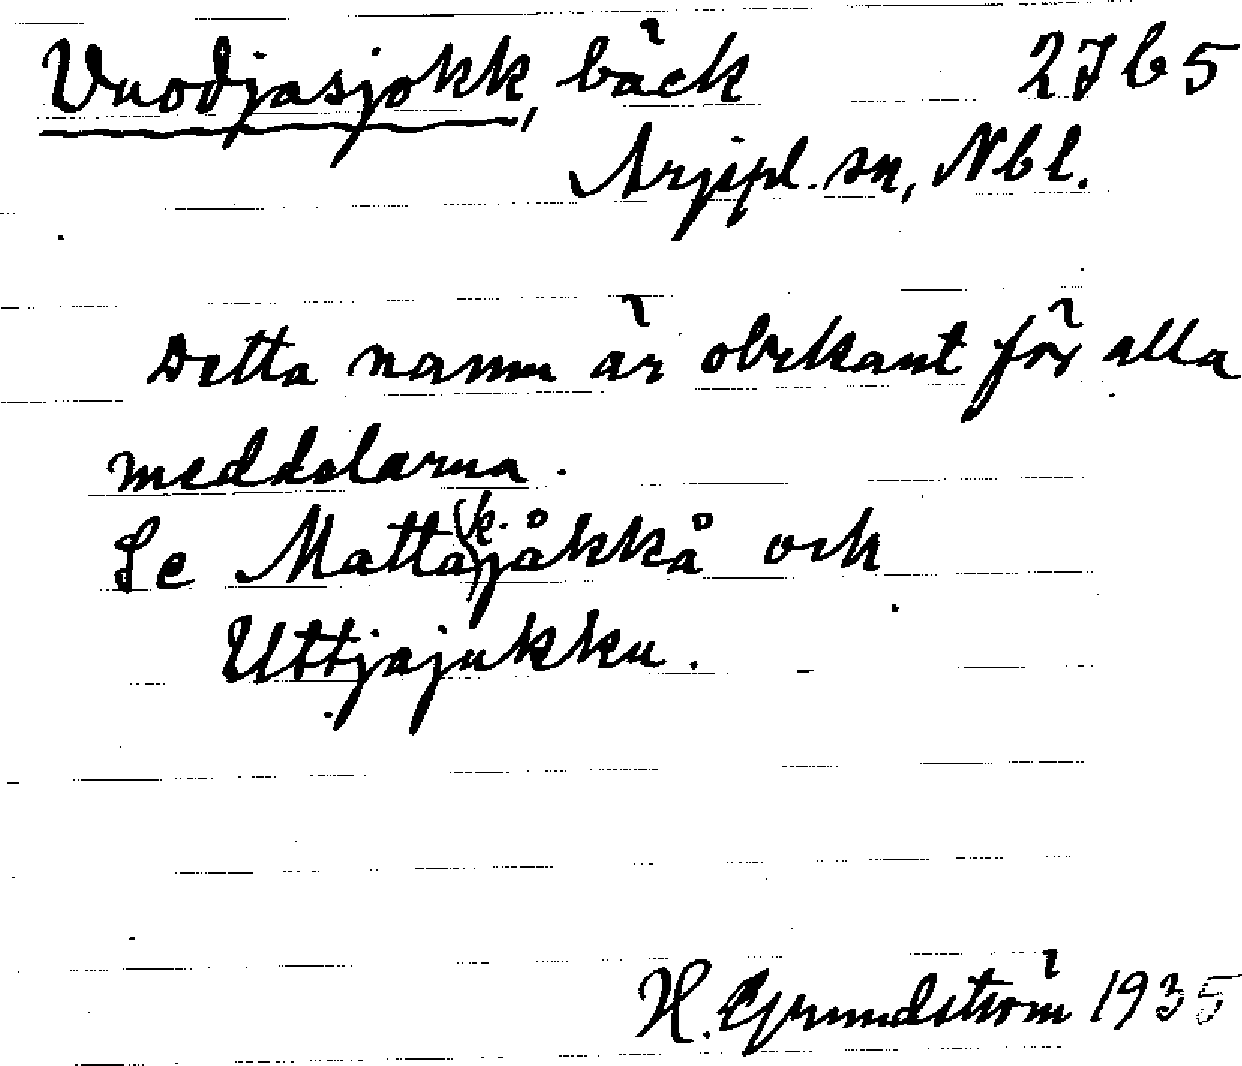 Vuodjasjokk, bäck 2Jb5
Arjepl. sn, Nbl.
Detta namn är obekant för alla
meddelarna.
Se Matta(k.)jåkkå och
Uttjajukku.
H. Grundström 1935